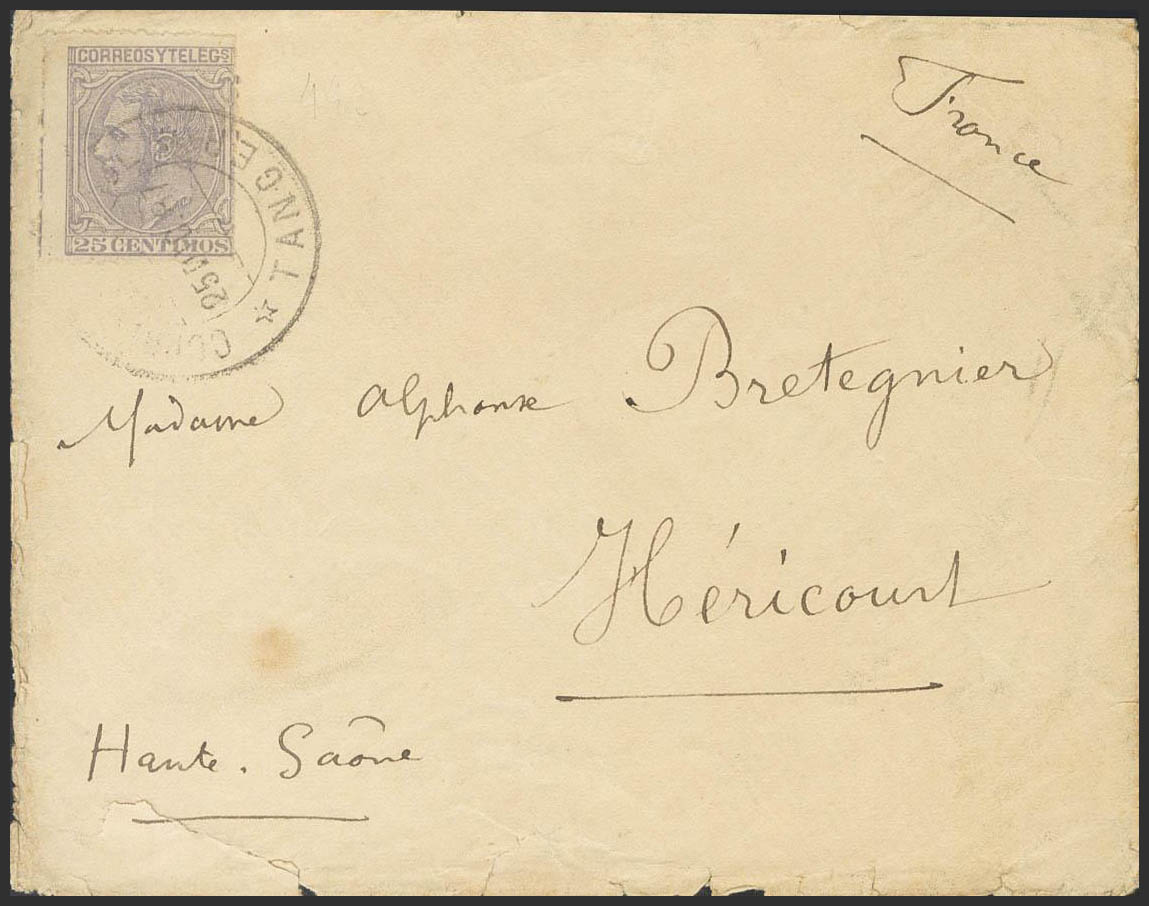 CORREOS Y TELEGS
25 CENTIMOS
TANGER
France
Madame Alphonse Bretegnier
Héricourt
Haute-Saône